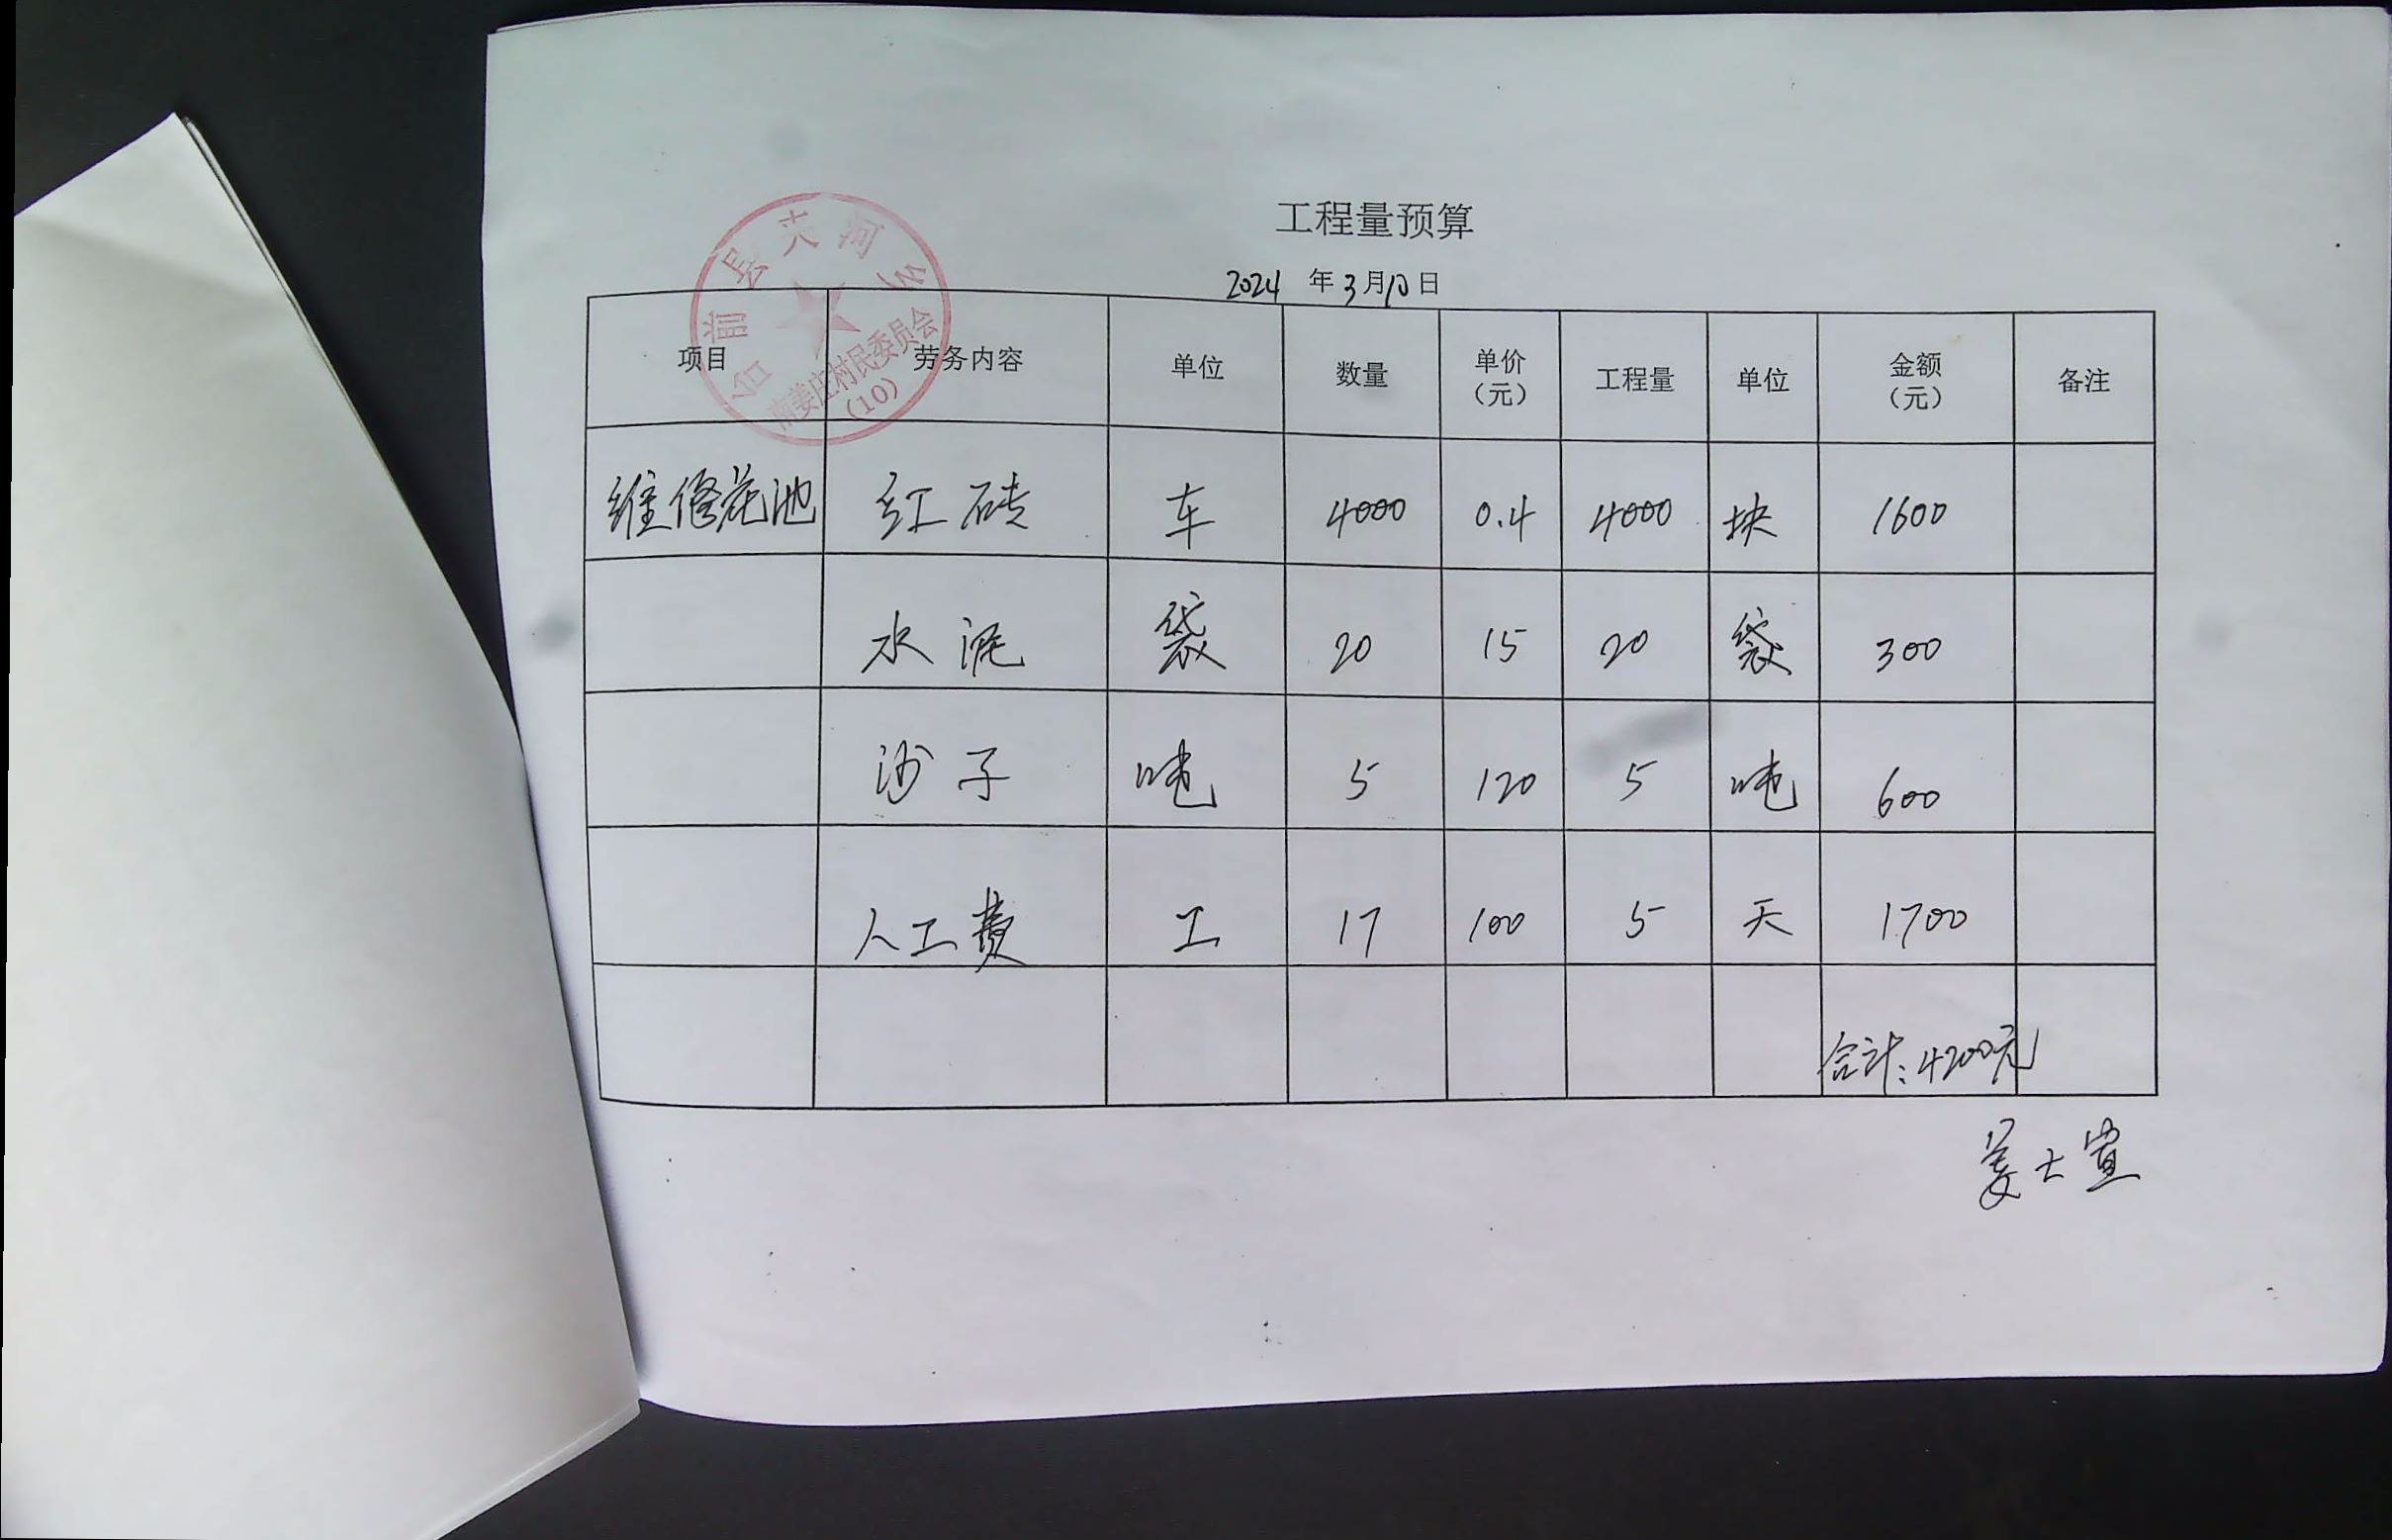 工程量预算
2024 年 3 月 10 日
台前县夹河乡
南姜庄村民委员会
(10)
项目 劳务内容 单位 数量 单价(元) 工程量 单位 金额(元) 备注
维修花池 红砖 车 4000 0.4 4000 块 1600
水泥 袋 20 15 20 袋 300
沙子 吨 5 120 5 吨 600
人工费 工 17 100 5 天 1700
合计:4200元
姜士宣